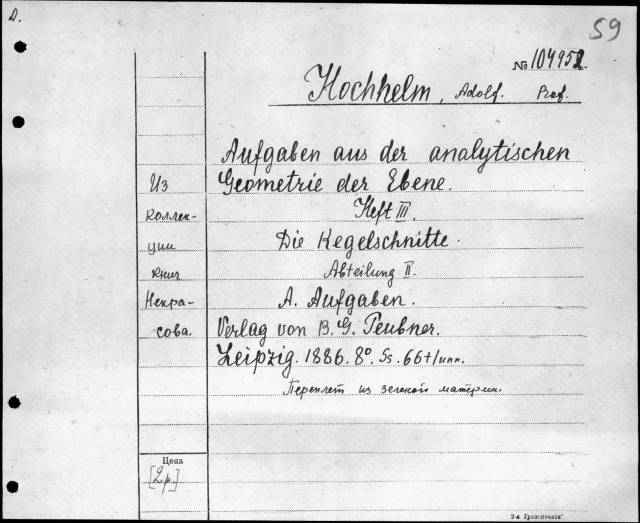 D.
59
№ 104952
Hochheim, Adolf. Prof.
Aufgaben aus der analytischen
Geometrie der Ebene.
Heft III.
Die Kegelschnitte.
Abteilung II.
A. Aufgaben.
Verlag von B. G. Teubner.
Leipzig. 1886. 8° Ss. 66+1unn.
Переплет из зеленой материи.
Из
коллек-
ции
книг
Некра-
сова.
Цена
[2р.]
3-я Гравпечать"